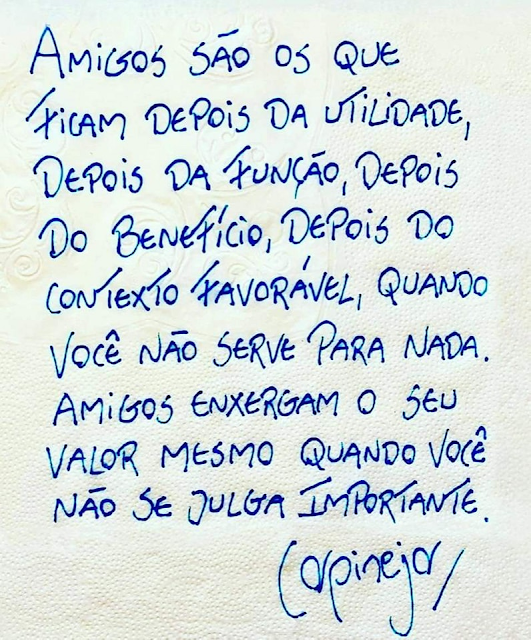 AMIGOS SÃO OS QUE
FICAM DEPOIS DA UTILIDADE,
DEPOIS DA FUNÇÃO, DEPOIS
DO BENEFÍCIO, DEPOIS DO
CONTEXTO FAVORÁVEL, QUANDO
VOCÊ NÃO SERVE PARA NADA.
AMIGOS ENXERGAM O SEU
VALOR MESMO QUANDO VOCÊ
NÃO SE JULGA IMPORTANTE.
Carpinejar